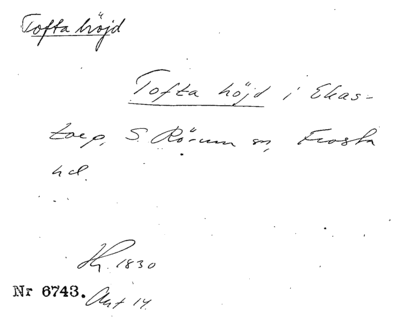 Tofta höjd
Tofta höjd i Ekas-
torp, S. Rörum sn, Frosta
hd.
Hg. 1830
Nr 6743. Ant 14.